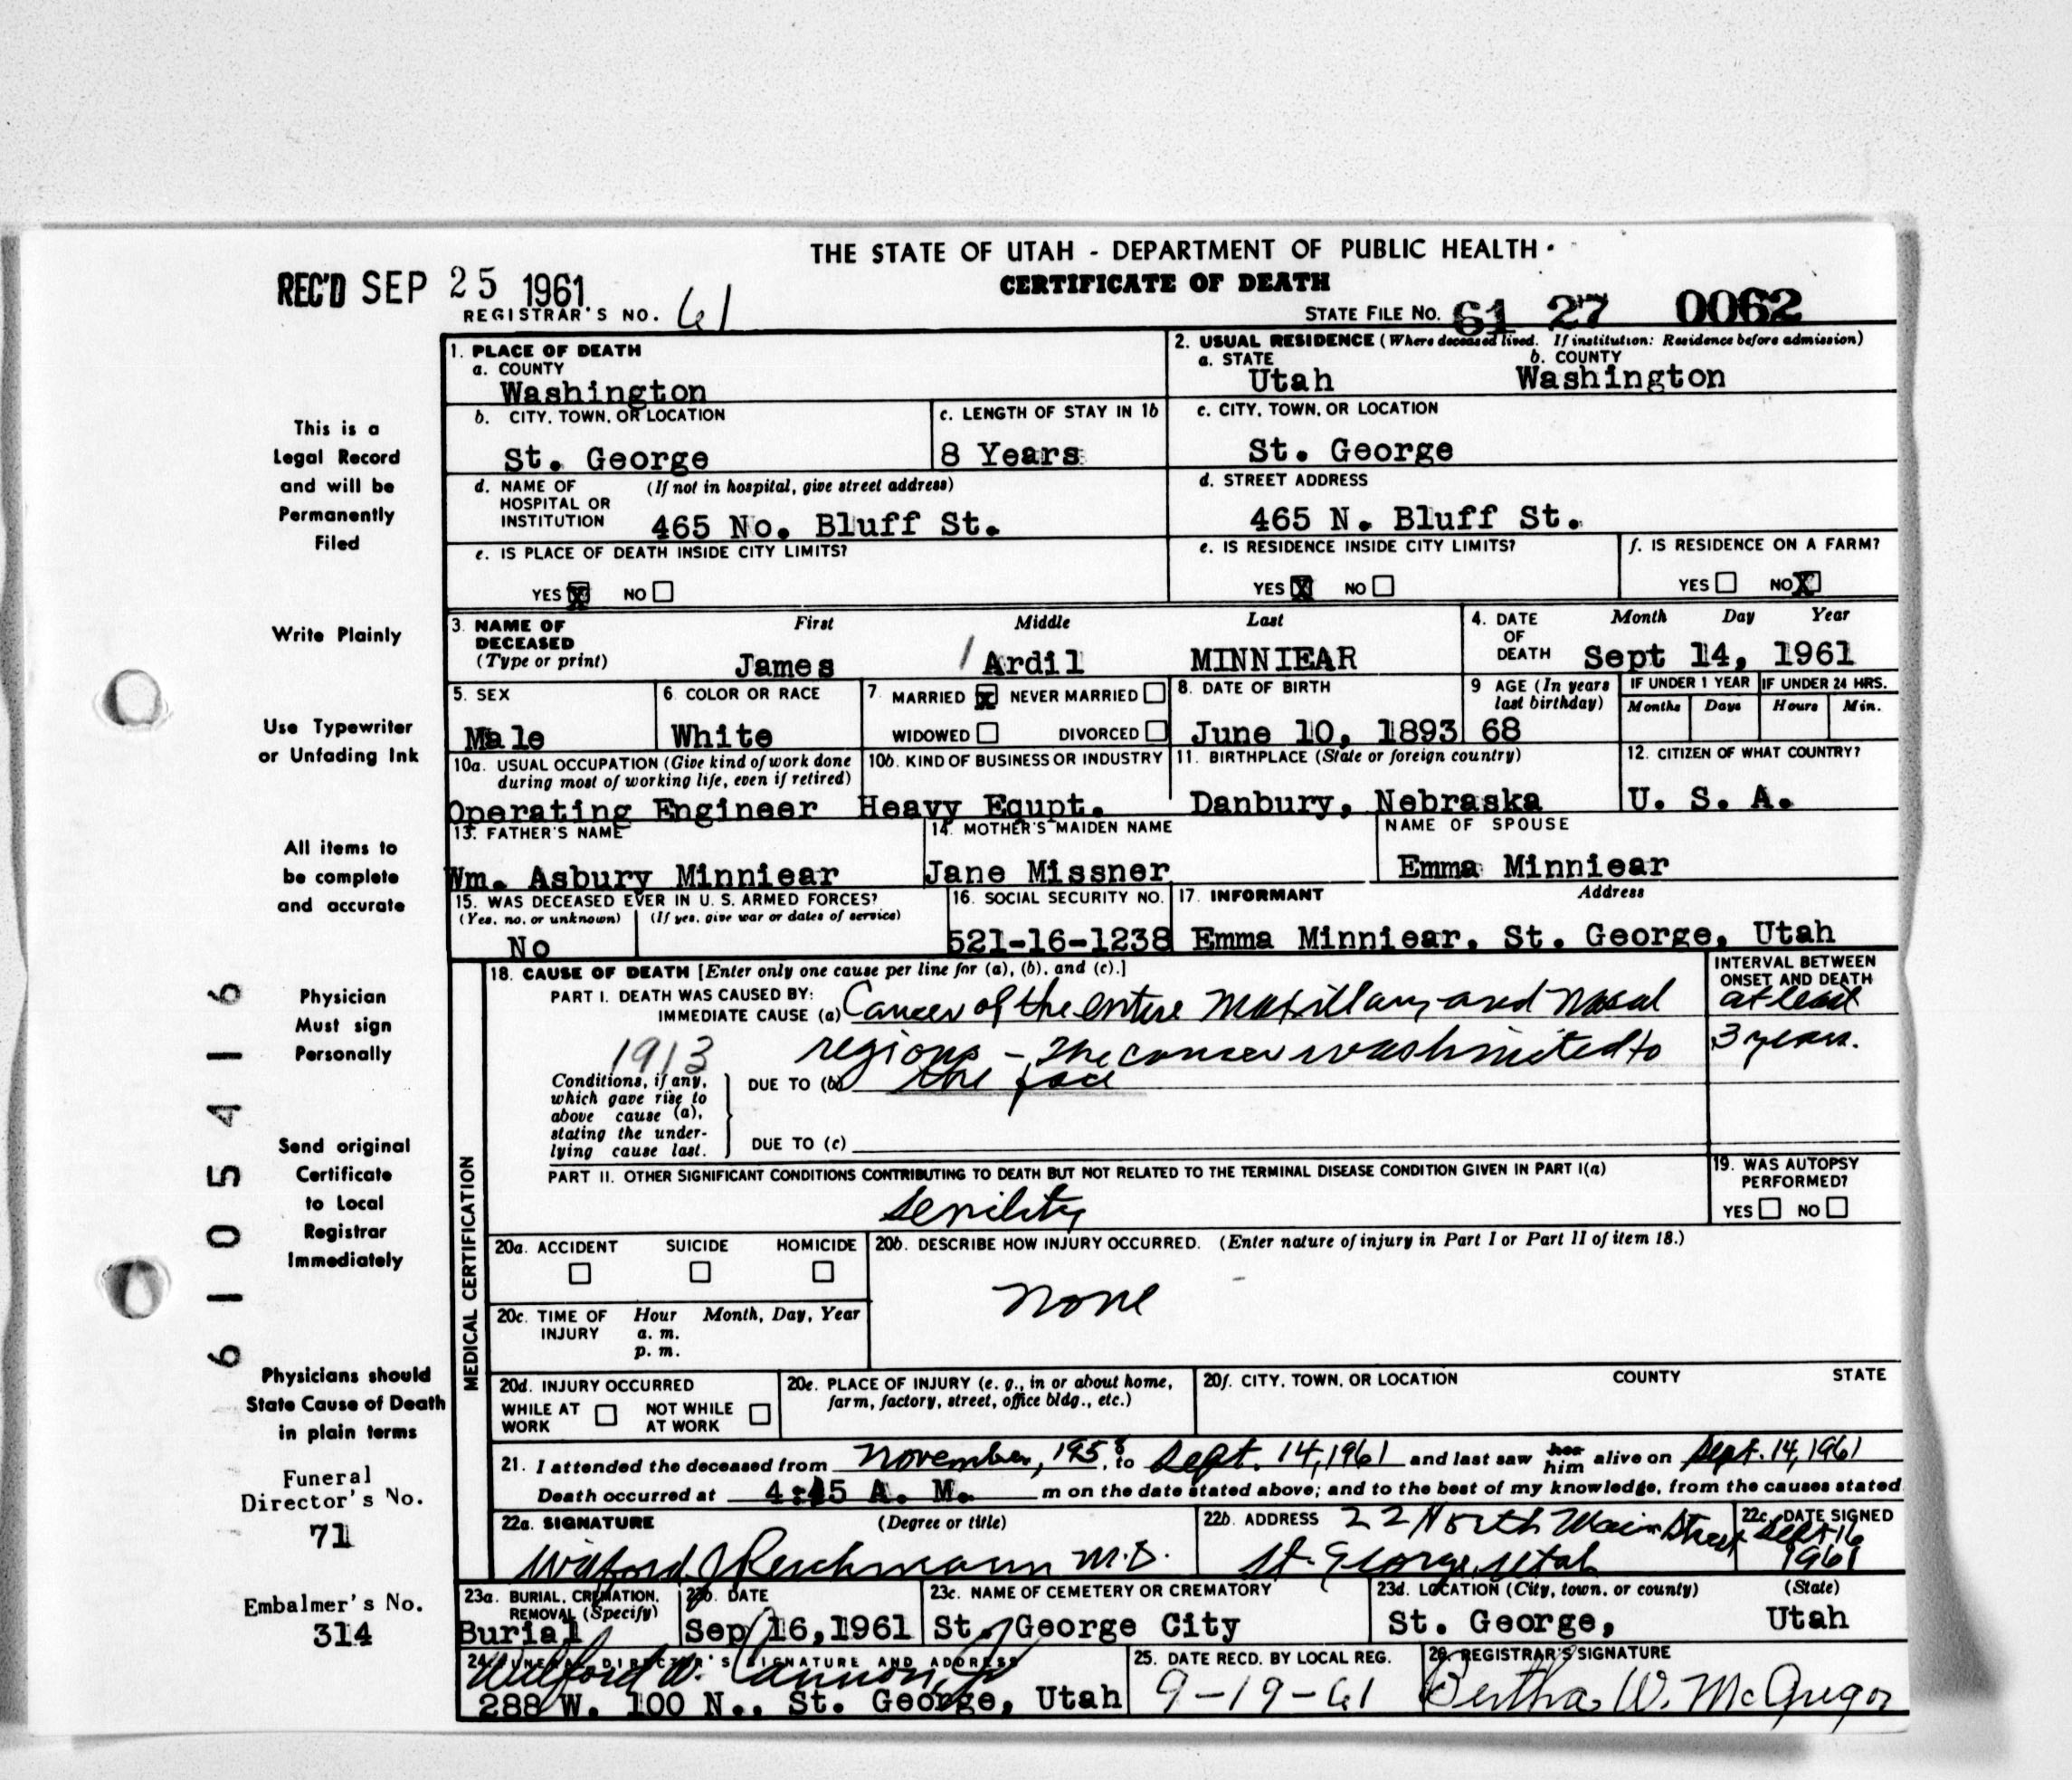 THE STATE OF UTAH - DEPARTMENT OF PUBLIC HEALTH
CERTIFICATE OF DEATH
REC'D SEP 25 1961
REGISTRAR'S NO. 61
STATE FILE NO. 61 27 0062
This is a
Legal Record
and will be
Permanently
Filed
Write Plainly
Use Typewriter
or Unfading Ink
All items to
be complete
and accurate
Physician
Must sign
Personally
Send original
Certificate
to Local
Registrar
Immediately
Physicians should
State Cause of Death
in plain terms
Funeral
Director's No.
71
Embalmer's No.
314
61054 16
1. PLACE OF DEATH
a. COUNTY
Washington
2. USUAL RESIDENCE (Where deceased lived. If institution: Residence before admission)
a. STATE b. COUNTY
Utah Washington
b. CITY, TOWN, OR LOCATION
St. George
c. LENGTH OF STAY IN 1b
8 Years
c. CITY, TOWN, OR LOCATION
St. George
d. NAME OF (If not in hospital, give street address)
HOSPITAL OR
INSTITUTION 465 No. Bluff St.
d. STREET ADDRESS
465 N. Bluff St.
e. IS PLACE OF DEATH INSIDE CITY LIMITS?
YES X NO
e. IS RESIDENCE INSIDE CITY LIMITS?
YES X NO
f. IS RESIDENCE ON A FARM?
YES NO X
3. NAME OF First Middle Last
DECEASED
(Type or print) James Ardil MINNIEAR
4. DATE Month Day Year
OF
DEATH Sept 14, 1961
5. SEX
Male
6. COLOR OR RACE
White
7. MARRIED X NEVER MARRIED
WIDOWED DIVORCED
8. DATE OF BIRTH
June 10, 1893
9 AGE (In years
last birthday)
68
IF UNDER 1 YEAR IF UNDER 24 HRS.
Months Days Hours Min.
10a. USUAL OCCUPATION (Give kind of work done
during most of working life, even if retired)
Operating Engineer
10b. KIND OF BUSINESS OR INDUSTRY
Heavy Equpt.
11. BIRTHPLACE (State or foreign country)
Danbury, Nebraska
12. CITIZEN OF WHAT COUNTRY?
U. S. A.
13. FATHER'S NAME
Wm. Asbury Minniear
14. MOTHER'S MAIDEN NAME
Jane Missner
NAME OF SPOUSE
Emma Minniear
15. WAS DECEASED EVER IN U. S. ARMED FORCES?
(Yes, no, or unknown) (If yes, give war or dates of service)
No
16. SOCIAL SECURITY NO.
521-16-1238
17. INFORMANT Address
Emma Minniear, St. George, Utah
MEDICAL CERTIFICATION
18. CAUSE OF DEATH [Enter only one cause per line for (a), (b), and (c).]
PART I. DEATH WAS CAUSED BY:
IMMEDIATE CAUSE (a) Cancer of the entire Maxillary and Nasal
1913 regions - The cancer was limited to
the face
INTERVAL BETWEEN
ONSET AND DEATH
at least
3 years.
Conditions, if any,
which gave rise to
above cause (a),
stating the under-
lying cause last.
DUE TO (b)
DUE TO (c)
PART II. OTHER SIGNIFICANT CONDITIONS CONTRIBUTING TO DEATH BUT NOT RELATED TO THE TERMINAL DISEASE CONDITION GIVEN IN PART I(a)
Senility
19. WAS AUTOPSY
PERFORMED?
YES NO
20a. ACCIDENT SUICIDE HOMICIDE
20b. DESCRIBE HOW INJURY OCCURRED. (Enter nature of injury in Part I or Part II of item 18.)
None
20c. TIME OF Hour Month, Day, Year
INJURY a. m.
p. m.
20d. INJURY OCCURRED
WHILE AT NOT WHILE
WORK AT WORK
20e. PLACE OF INJURY (e. g., in or about home,
farm, factory, street, office bldg., etc.)
20f. CITY, TOWN, OR LOCATION COUNTY STATE
21. I attended the deceased from November, 1958, to Sept. 14, 1961 and last saw her him alive on Sept. 14, 1961
Death occurred at 4:45 A. M. m on the date stated above; and to the best of my knowledge, from the causes stated
22a. SIGNATURE (Degree or title)
Wilford J Reichmann M.D.
22b. ADDRESS 22 North Main Street
St. George, Utah
22c. DATE SIGNED
Sept 16
1961
23a. BURIAL, CREMATION,
REMOVAL (Specify)
Burial
23b. DATE
Sep 16, 1961
23c. NAME OF CEMETERY OR CREMATORY
St. George City
23d. LOCATION (City, town, or county) (State)
St. George, Utah
24. FUNERAL DIRECTOR'S SIGNATURE AND ADDRESS
Wilford W. Cannon, Jr
288 W. 100 N., St. George, Utah
25. DATE RECD. BY LOCAL REG.
9-19-61
26. REGISTRAR'S SIGNATURE
Bertha W. McGregor